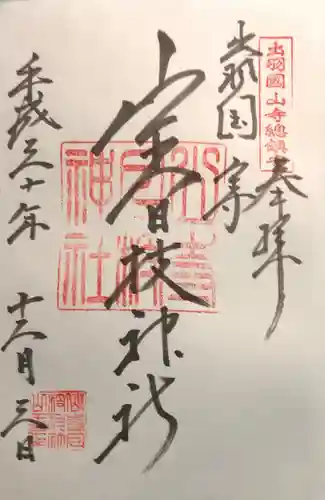 出羽國山寺總鎮守
奉拝
出羽国
山寺日枝神社
山寺日枝神社
平成三十年
十二月三日